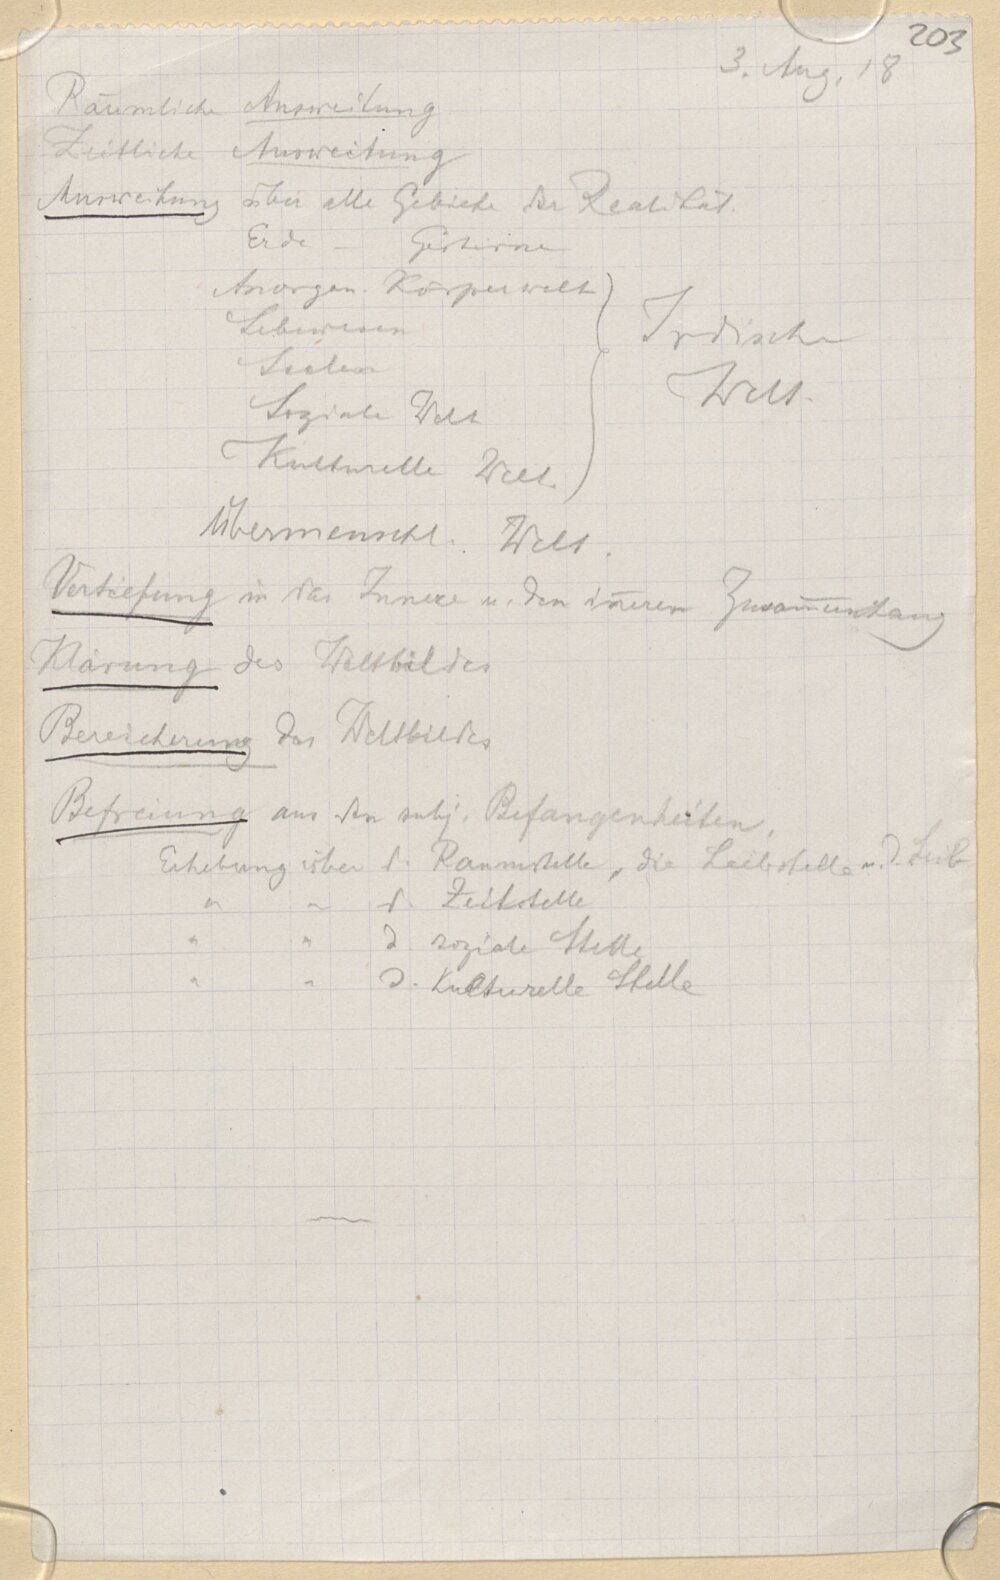 203
3. Aug. 18
Räumliche Ausweitung
Zeitliche Ausweitung
Ausweitung über alle Gebiete der Realität.
Erde – Gestirne
Anorgan. Körperwelt
Lebewesen
Seelen
Irdische
Welt.
Soziale Welt
Kulturelle Welt.
Übermenschl. Welt.
Vertiefung in das Innere u. den inneren Zusammenhang
Klärung des Weltbildes
Bereicherung des Weltbildes
Befreiung aus den subj. Befangenheiten.
Erhebung über d. Raumstelle, die Leibstelle u. d. Leib
" " d. Zeitstelle
" " d. soziale Stelle
" " d. Kulturelle Stelle